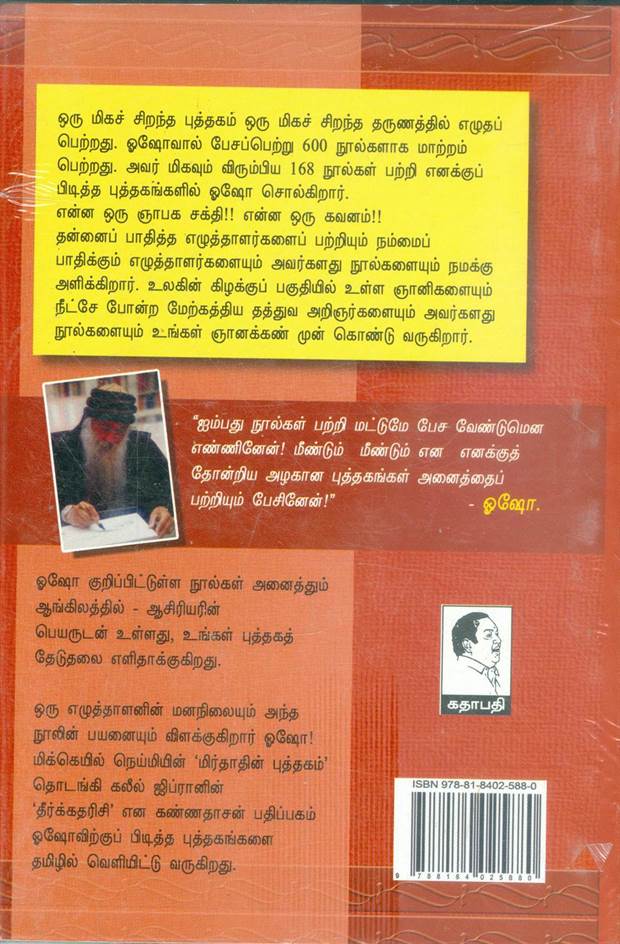 ஒரு மிகச் சிறந்த புத்தகம் ஒரு மிகச் சிறந்த தருணத்தில் எழுதப்
பெற்றது. ஓஷோவால் பேசப்பெற்று 600 நூல்களாக மாற்றம்
பெற்றது. அவர் மிகவும் விரும்பிய 168 நூல்கள் பற்றி எனக்குப்
பிடித்த புத்தகங்களில் ஓஷோ சொல்கிறார்.
என்ன ஒரு ஞாபக சக்தி!! என்ன ஒரு கவனம்!!
தன்னைப் பாதித்த எழுத்தாளர்களைப் பற்றியும் நம்மைப்
பாதிக்கும் எழுத்தாளர்களையும் அவர்களது நூல்களையும் நமக்கு
அளிக்கிறார். உலகின் கிழக்குப் பகுதியில் உள்ள ஞானிகளையும்
நீட்சே போன்ற மேற்கத்திய தத்துவ அறிஞர்களையும் அவர்களது
நூல்களையும் உங்கள் ஞானக்கண் முன் கொண்டு வருகிறார்.
"ஐம்பது நூல்கள் பற்றி மட்டுமே பேச வேண்டுமென
எண்ணினேன்! மீண்டும் மீண்டும் என எனக்குத்
தோன்றிய அழகான புத்தகங்கள் அனைத்தைப்
பற்றியும் பேசினேன்!" - ஓஷோ.
ஓஷோ குறிப்பிட்டுள்ள நூல்கள் அனைத்தும்
ஆங்கிலத்தில் - ஆசிரியரின்
பெயருடன் உள்ளது, உங்கள் புத்தகத்
தேடுதலை எளிதாக்குகிறது.
ஒரு எழுத்தாளனின் மனநிலையும் அந்த
நூலின் பயனையும் விளக்குகிறார் ஓஷோ!
மிக்கெயில் நெய்மியின் 'மிர்தாதின் புத்தகம்'
தொடங்கி கலீல் ஜிப்ரானின்
'தீர்க்கதரிசி' என கண்ணதாசன் பதிப்பகம்
ஓஷோவிற்குப் பிடித்த புத்தகங்களை
தமிழில் வெளியிட்டு வருகிறது.
கதாபதி
ISBN 978-81-8402-588-0
9 788184 025880